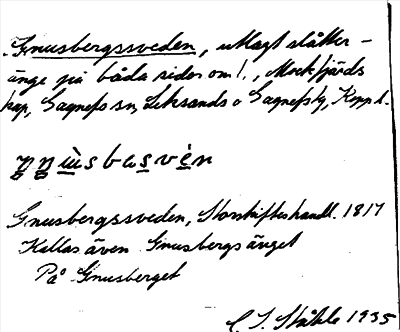 Gnusbergssveden, utlagt slåtter-
änge på båda sidor om l., Mockfjärds
kap, Gagnefs sn, Leksands o Gagnefs tg, Kopp. l.
Gnusbergssveden, Storskifteshandl. 1817
Kallas även Gnusbergsänget
På Gnusberget
C. I. Ståhle 1935